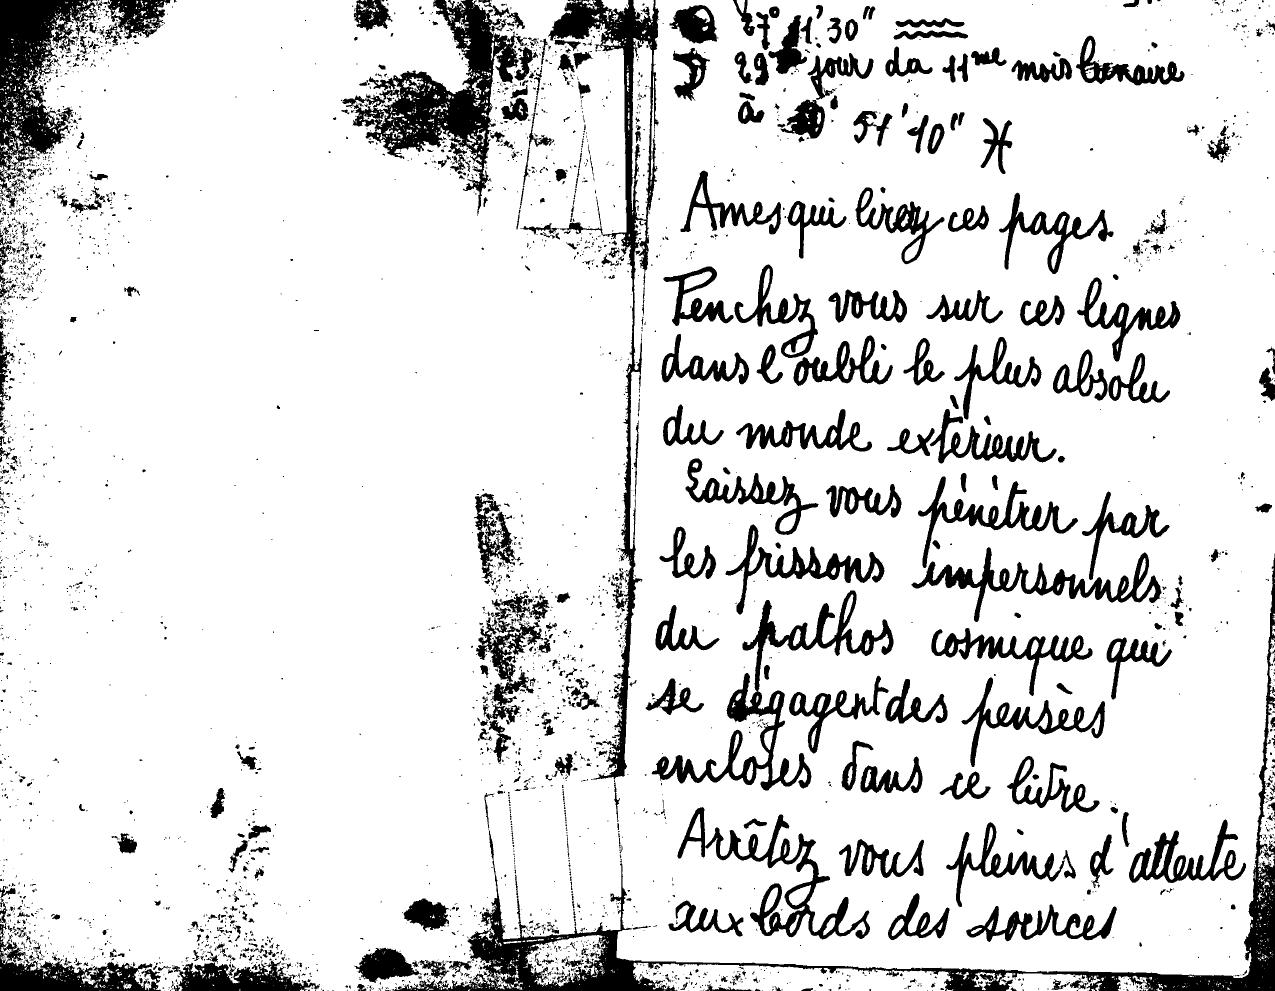 27° 11' 30" ♒
☽ 29 jour da 11me mois lunaire
à 51' 10" ♓
Ames qui lirez ces pages.
Penchez vous sur ces lignes
dans l'oubli le plus absolu
du monde extèrieur.
Laissez vous pénétrer par
les frissons impersonnels
du pathos cosmique qui
se dégagent des pensèes
encloses dans ce livre.
Arrêtez vous pleines d'attente
aux bords des sources